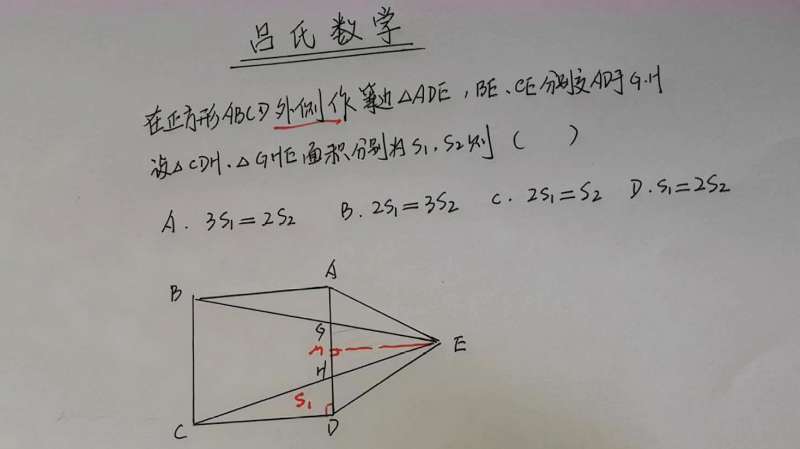 吕氏数学
在正方形ABCD外侧作等边△ADE,BE、CE分别交AD于G.H
设△CDH.△GHE面积分别为S₁.S₂则( )
A. 3S₁=2S₂ B. 2S₁=3S₂ C. 2S₁=S₂ D. S₁=2S₂
A
B
G
M
E
H
S₁
C
D